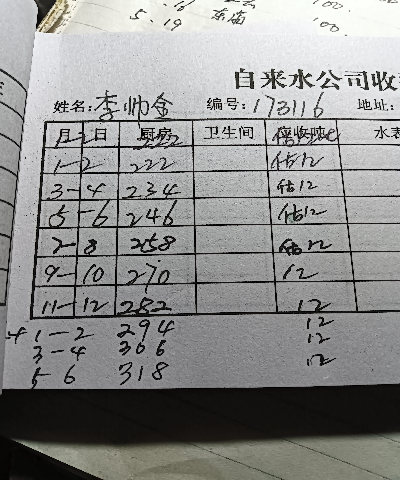 100.
5.19 东南 100.
自来水公司收
姓名:李帅金 编号:173116 地址:
月 日 厨房 卫生间 水表
1-2 222 估12
3-4 234 估12
5-6 246 估12
7-8 258 估12
9-10 270 12
11-12 282 12
1-2 294 12
3-4 306 12
5 6 318 12